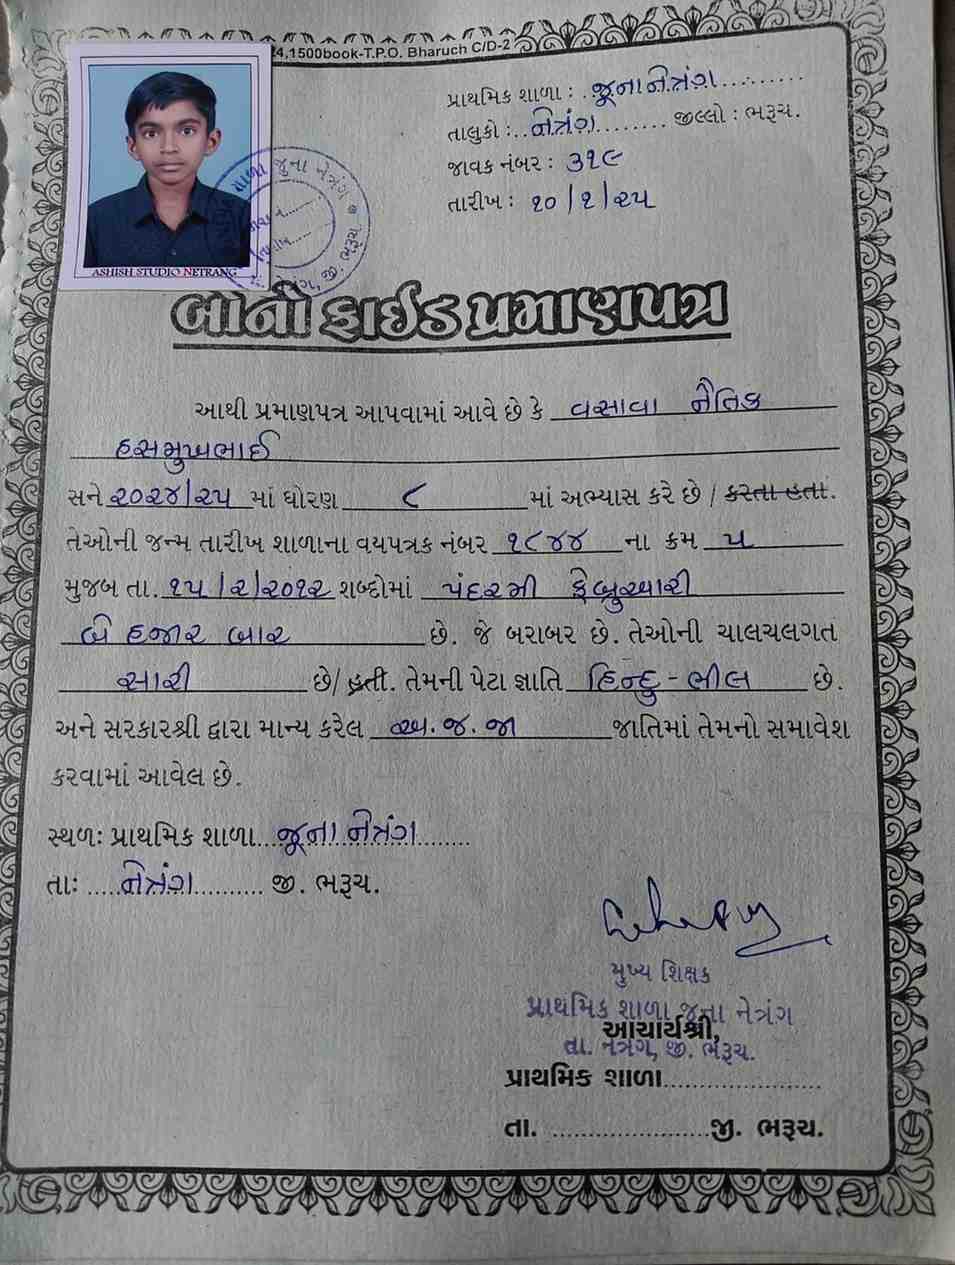 4,1500book-T.P.O. Bharuch C/D-2
પ્રાથમિક શાળા : જૂના નેત્રંગ
તાલુકો : નેત્રંગ જીલ્લો : ભરૂચ.
જાવક નંબર : ૩૧૯
તારીખ : ૧૦/૧/૨૫
શાળા જુના નેત્રંગ
જી. ભરૂચ
ASHISH STUDIO NETRANG
બોનોફાઈડ પ્રમાણપત્ર
આથી પ્રમાણપત્ર આપવામાં આવે છે કે વસાવા નૈતિક
હસમુખભાઈ
સને ૨૦૨૪/૨૫ માં ધોરણ ૮ માં અભ્યાસ કરે છે / કરતા હતા.
તેઓની જન્મ તારીખ શાળાના વયપત્રક નંબર ૧૮૪૪ ના ક્રમ ૫
મુજબ તા. ૧૫/૨/૨૦૧૨ શબ્દોમાં પંદરમી ફેબ્રુઆરી
બે હજાર બાર છે. જે બરાબર છે. તેઓની ચાલચલગત
સારી છે/ હતી. તેમની પેટા જ્ઞાતિ હિન્દુ - ભીલ છે.
અને સરકારશ્રી દ્વારા માન્ય કરેલ અ.જ.જા જાતિમાં તેમનો સમાવેશ
કરવામાં આવેલ છે.
સ્થળઃ પ્રાથમિક શાળા જૂના નેત્રંગ
તાઃ નેત્રંગ જી. ભરૂચ.
મુખ્ય શિક્ષક
પ્રાથમિક શાળા જુના નેત્રંગ
આચાર્યશ્રી,
તા. નેત્રંગ, જી. ભરૂચ.
પ્રાથમિક શાળા
તા. જી. ભરૂચ.